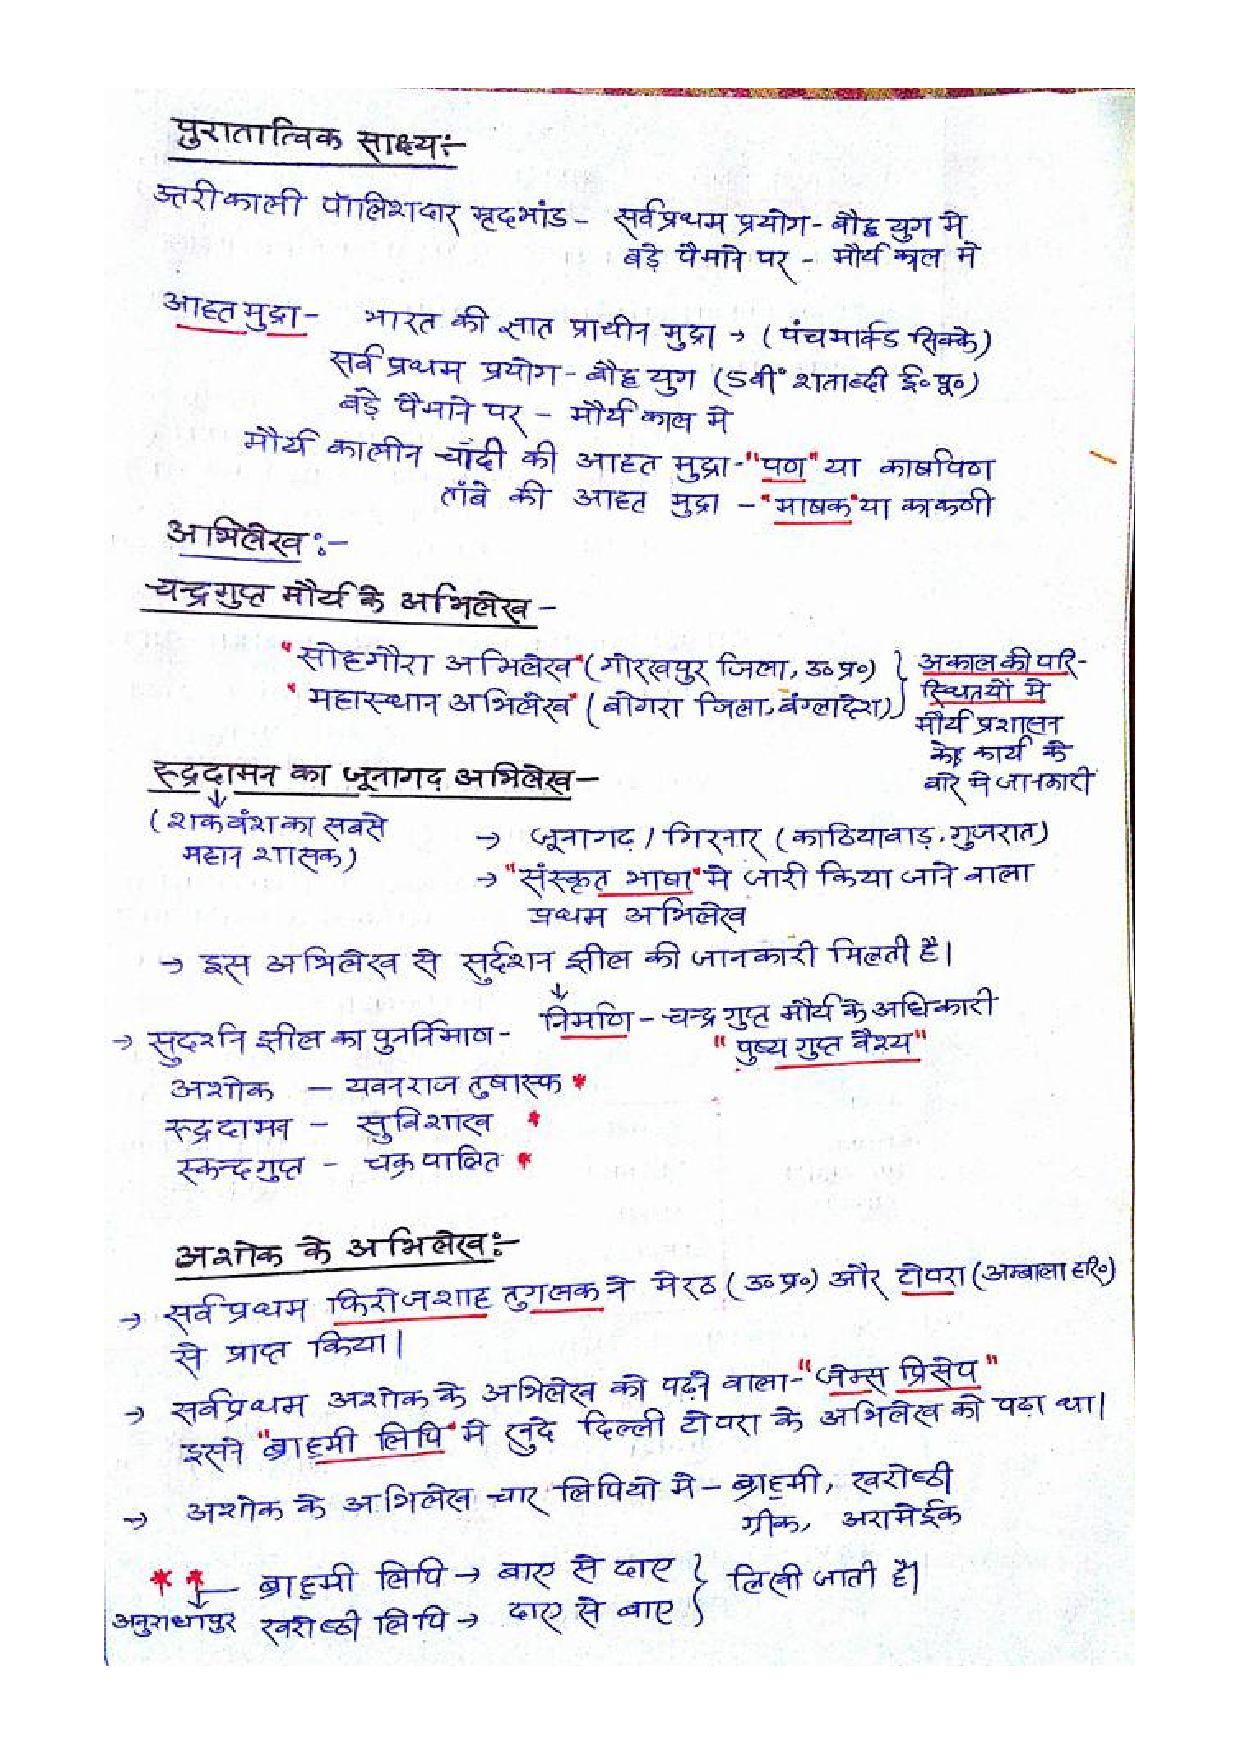 पुरातात्विक साक्ष्य:-
उत्तरीकाली पॉलिशदार मृदभांड - सर्वप्रथम प्रयोग - बौद्ध युग मे
बड़े पैमाने पर - मौर्य काल मे
आहत मुद्रा - भारत की ज्ञात प्राचीन मुद्रा → (पंचमार्कड सिक्के)
सर्वप्रथम प्रयोग - बौद्ध युग (5वीं शताब्दी ई॰पू॰)
बड़े पैमाने पर - मौर्य काल मे
मौर्य कालीन चाँदी की आहत मुद्रा - "पण" या कार्षापण
ताँबे की आहत मुद्रा - "माषक" या काकणी
अभिलेख:-
चन्द्रगुप्त मौर्य के अभिलेख -
"सोहगौरा अभिलेख" (गोरखपुर जिला, उ॰प्र॰)
"महास्थान अभिलेख" (बोगरा जिला, बंग्लादेश)
अकाल की परि-
स्थितयों मे
मौर्य प्रशासन
के कार्य के
बारे मे जानकारी
रुद्रदामन का जूनागढ़ अभिलेख -
(शक वंश का सबसे
महान शासक)
→ जूनागढ़ / गिरनार (काठियावाड़, गुजरात)
→ "संस्कृत भाषा" मे जारी किया जाने वाला
प्रथम अभिलेख
→ इस अभिलेख से सुर्दशन झील की जानकारी मिलती है।
निर्माण - चन्द्रगुप्त मौर्य के अधिकारी
"पुष्य गुप्त वैश्य"
→ सुदर्शन झील का पुनर्निमाण -
अशोक - यवनराज तुषास्फ *
रुद्रदामन - सुविशाख *
स्कन्दगुप्त - चक्रपालित *
अशोक के अभिलेख:-
→ सर्वप्रथम फिरोजशाह तुगलक ने मेरठ (उ॰प्र॰) और टोपरा (अम्बाला हरि॰)
से प्राप्त किया।
→ सर्वप्रथम अशोक के अभिलेख को पढ़ने वाला - "जेम्स प्रिसेप"
इसने "ब्राह्मी लिपि" मे खुदे दिल्ली टोपरा के अभिलेख को पढ़ा था।
→ अशोक के अभिलेख चार लिपियो मे - ब्राह्मी, खरोष्ठी
ग्रीक, अरामेईक
* * ब्राह्मी लिपि → बाए से दाए } लिखी जाती है।
अनुराधापुर खरोष्ठी लिपि → दाए से बाए